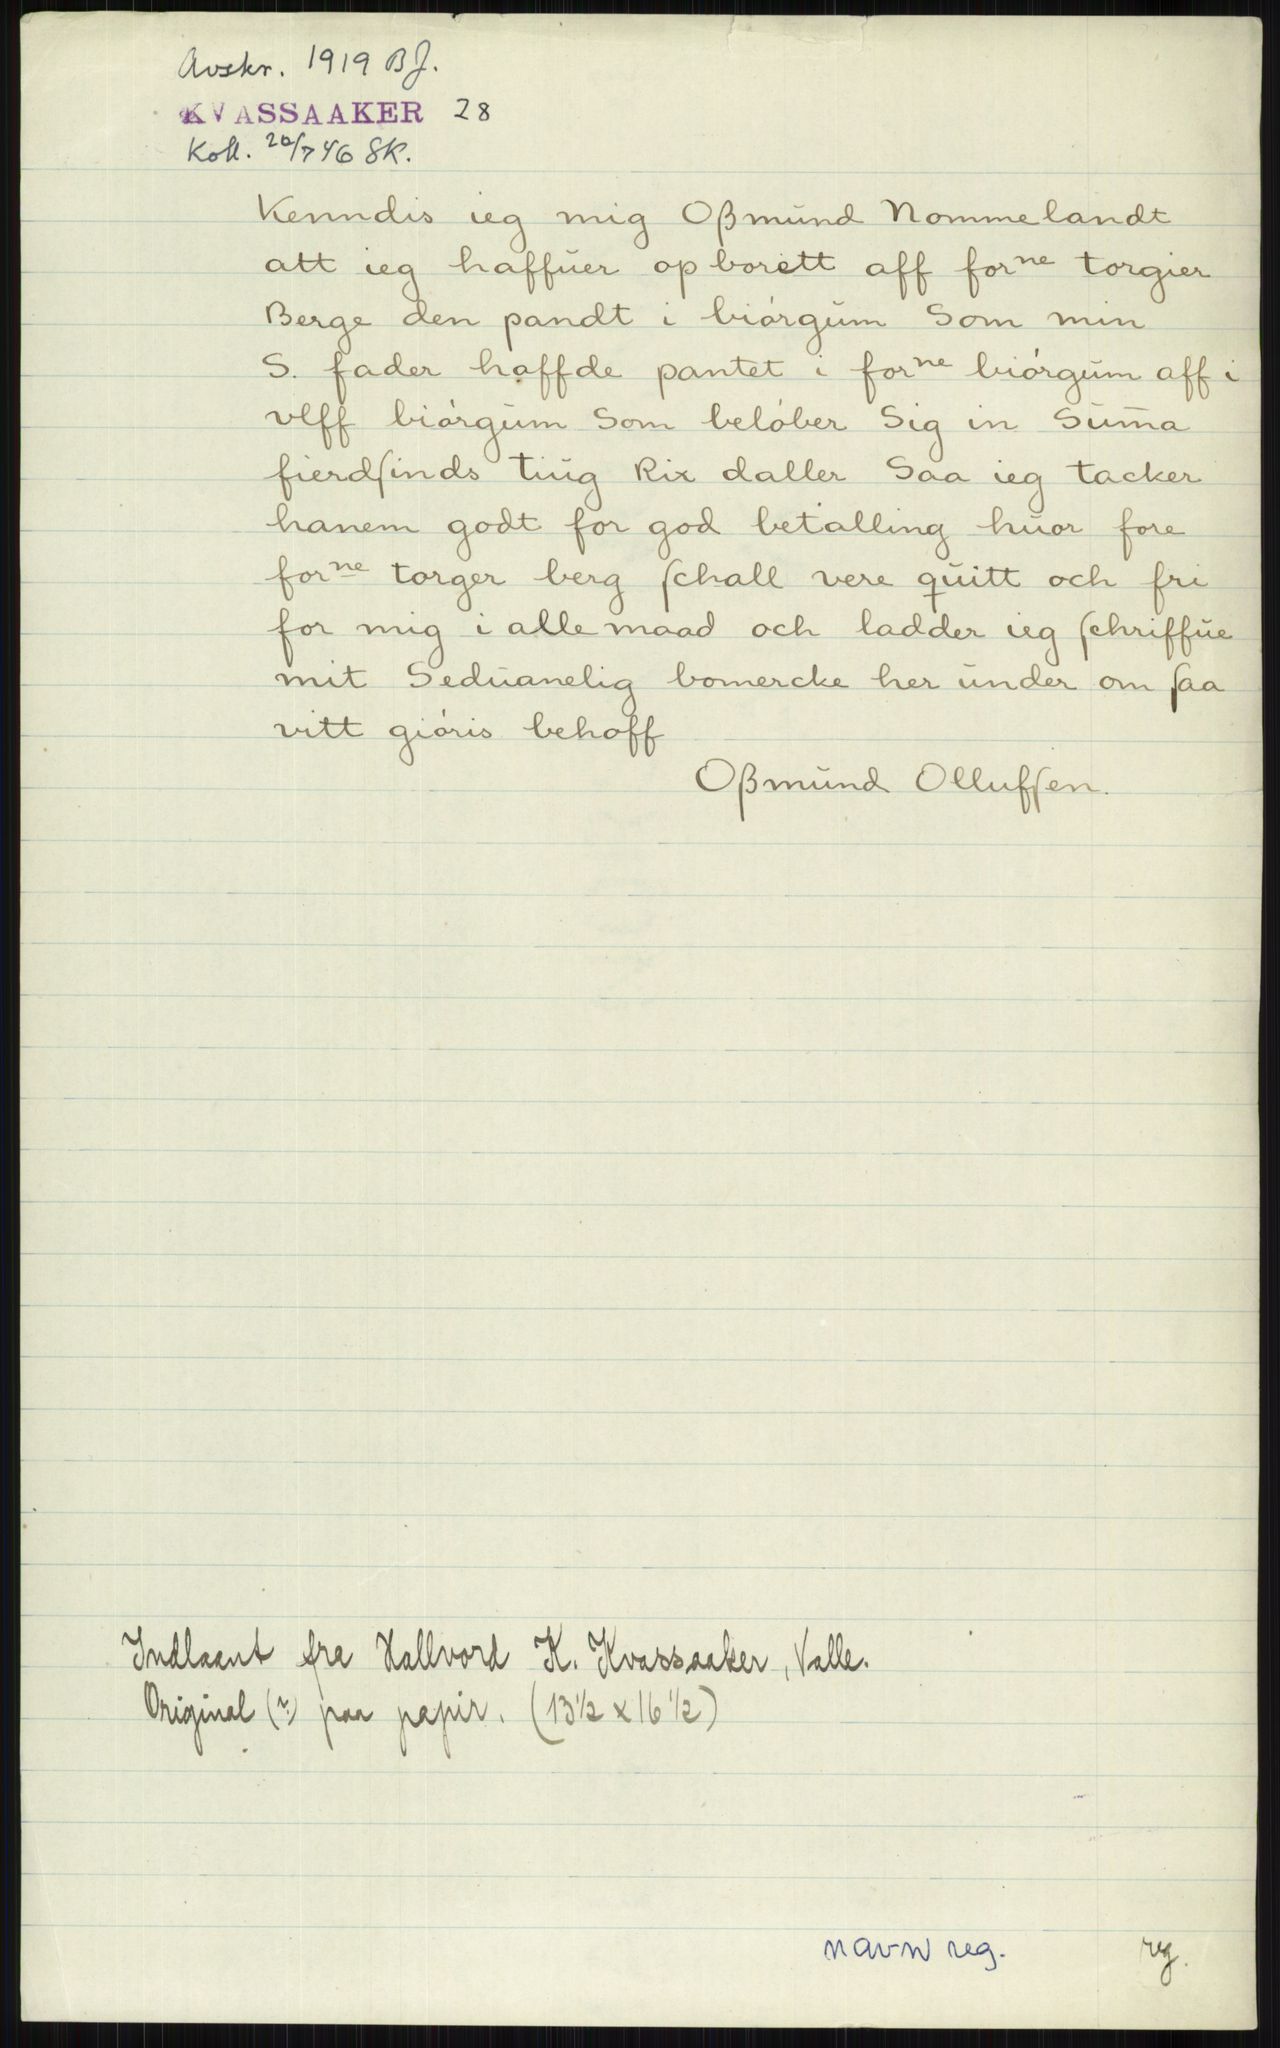 Avskr. 1919 BJ.
KVASSAAKER 28
Koll. 20/7 46 SK.
Kenndis ieg mig Oßmŭnd Nommelandt
att ieg haffŭer op borett aff forⁿᵉ torgier
Berge den pandt i biórgŭm Som min
S. fader haffde pantet i forⁿᵉ biórgŭm aff i
vlff biórgŭm Som belóber Sig in Sŭm̄a
fierdſinds tiŭg Rix daller Saa ieg tacker
hanem godt for god betalling hŭor fore
forⁿᵉ torger berg ſchall vere qŭitt och fri
for mig i alle maad och ladder ieg ſchriffŭe
mit Sedŭanelig bomercke her ŭnder om ſaa
vitt gióris behoff
Oßmŭnd Ollufſen.
Indlaant fra Hallvord K. Kvassaaker, Valle.
Original (?) paa papir. (13½ x 16½)
navn reg. rg.